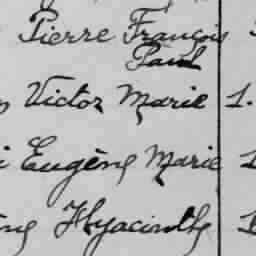 Pierre François
Paul
Victor Marie 1.
Eugène Marie 1
Hyacinthe 1